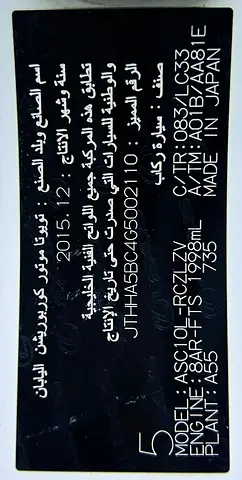 اسم الصانع وبلد الصنع : تويوتا موتور كوربوريشن اليابان
سنة وشهر الانتاج : 2015.12
تطابق هذه المركبة جميع اللوائح الفنية الخليجية
والوطنية للسيارات التي صدرت حتى تاريخ الإنتاج
الرقم المميز : JTHHA5BC4G5002110
صنف : سيارة ركاب
5
MODEL : ASC10L-RCZLZV C/TR : 083/LC33
ENGINE : 8AR-FTS 1998mL A/TM : A01B/AA81E
PLANT : A55 735 MADE IN JAPAN